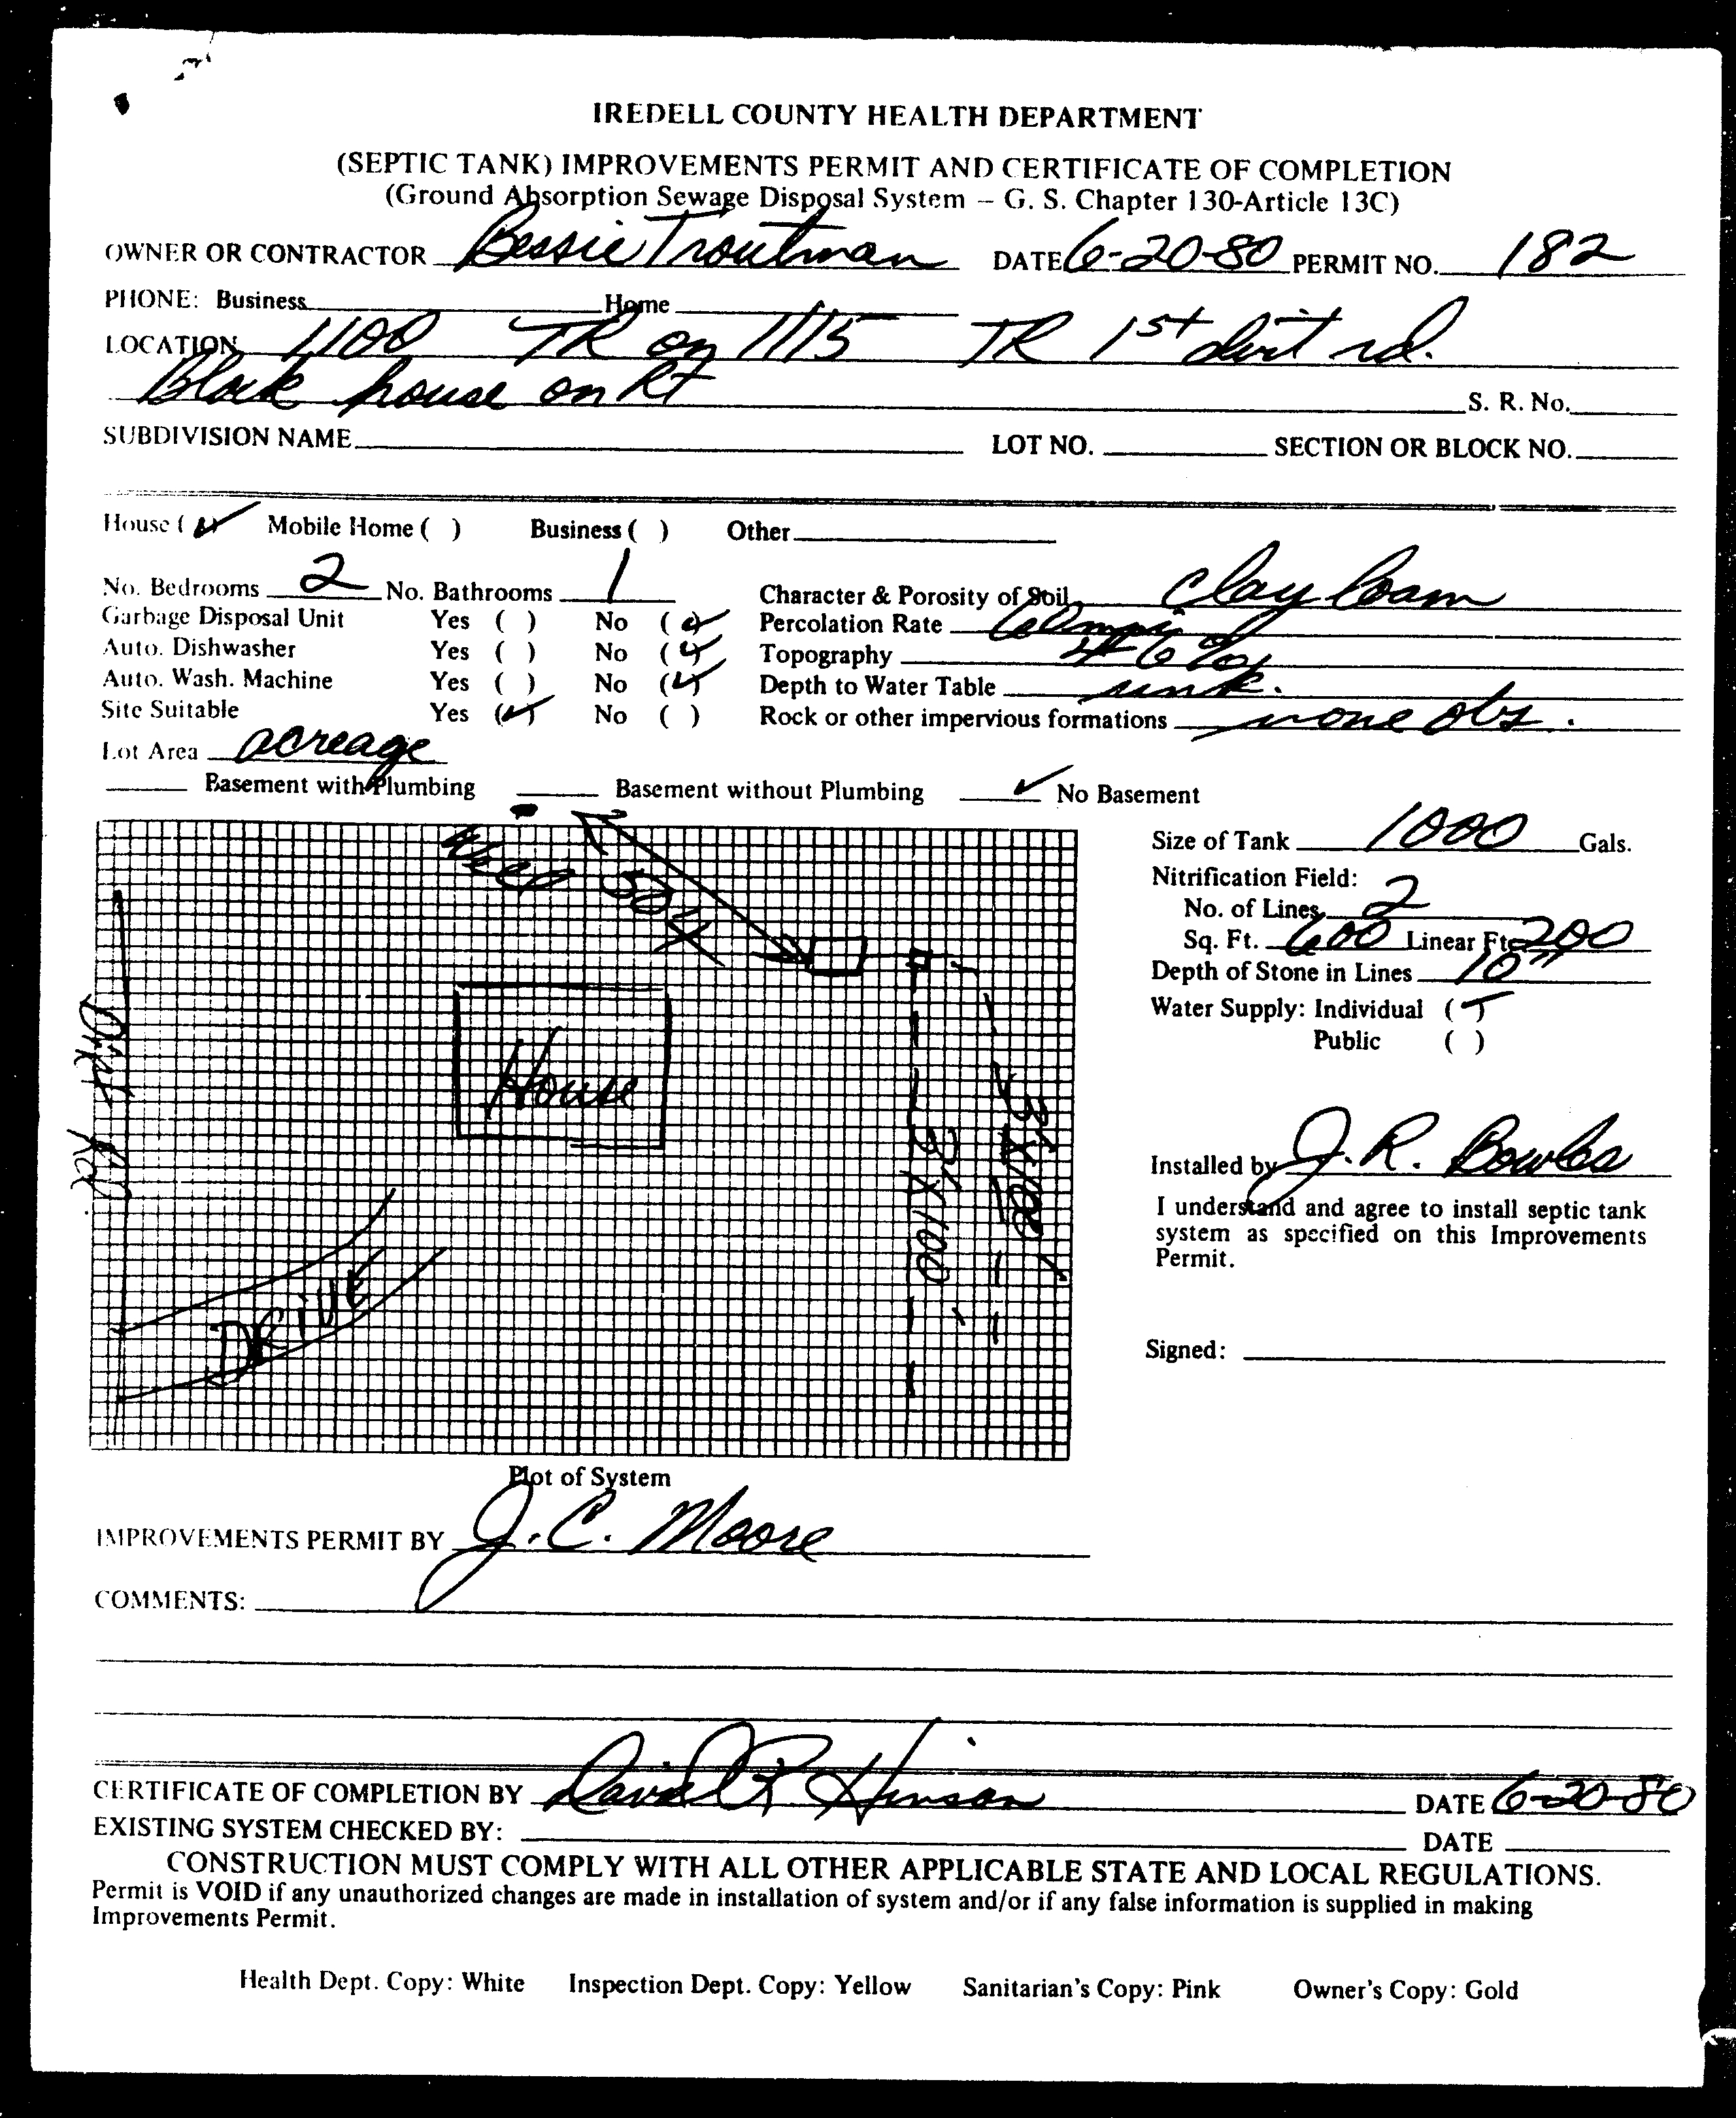 IREDELL COUNTY HEALTH DEPARTMENT
(SEPTIC TANK) IMPROVEMENTS PERMIT AND CERTIFICATE OF COMPLETION
(Ground Absorption Sewage Disposal System – G. S. Chapter 130-Article 13C)
OWNER OR CONTRACTOR Bessie Troutman DATE 6-20-80 PERMIT NO. 182
PHONE: Business Home
LOCATION 1100 TR on 1115 TR 1st dirt rd.
Block house on Rt S. R. No.
SUBDIVISION NAME LOT NO. SECTION OR BLOCK NO.
House (✓) Mobile Home ( ) Business ( ) Other
No. Bedrooms 2 No. Bathrooms 1 Character & Porosity of Soil clay loam
Garbage Disposal Unit Yes ( ) No (✓) Percolation Rate 60mpi
Auto. Dishwasher Yes ( ) No (✓) Topography 4-6%
Auto. Wash. Machine Yes ( ) No (✓) Depth to Water Table unk.
Site Suitable Yes (✓) No ( ) Rock or other impervious formations none obs.
Lot Area acreage
Basement with Plumbing Basement without Plumbing ✓ No Basement
Size of Tank 1000 Gals.
Nitrification Field:
No. of Lines 2
Sq. Ft. 600 Linear Ft. 200
Depth of Stone in Lines 10"
Water Supply: Individual (✓)
Public ( )
Well
50'
Dirt Rd
House
3'X100'
3'X100'
DRIVE
Installed by J.R. Bowles
I understand and agree to install septic tank
system as specified on this Improvements
Permit.
Signed:
Plot of System
IMPROVEMENTS PERMIT BY J.C. Moore
COMMENTS:
CERTIFICATE OF COMPLETION BY David R Hinson DATE 6-20-80
EXISTING SYSTEM CHECKED BY: DATE
CONSTRUCTION MUST COMPLY WITH ALL OTHER APPLICABLE STATE AND LOCAL REGULATIONS.
Permit is VOID if any unauthorized changes are made in installation of system and/or if any false information is supplied in making
Improvements Permit.
Health Dept. Copy: White Inspection Dept. Copy: Yellow Sanitarian's Copy: Pink Owner's Copy: Gold